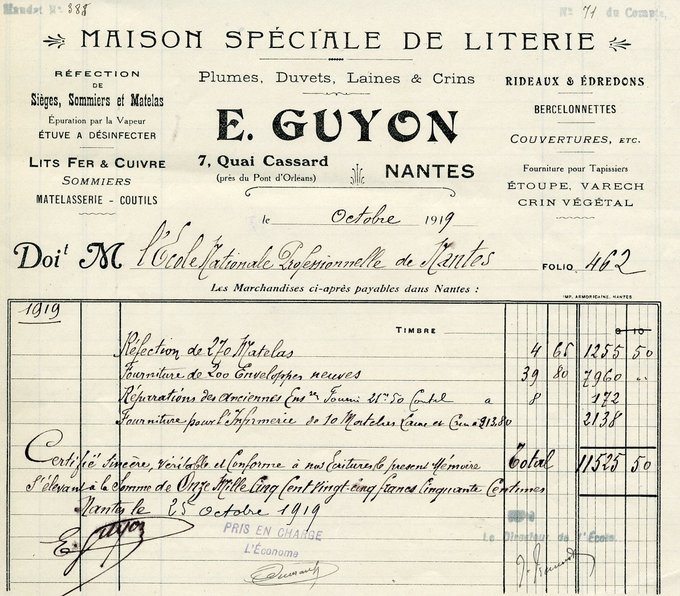 Mandat N° 388
N° 71 du Compte
MAISON SPÉCIALE DE LITERIE
RÉFECTION
DE
Sièges, Sommiers et Matelas
Épuration par la Vapeur
ÉTUVE A DÉSINFECTER
LITS FER & CUIVRE
SOMMIERS
MATELASSERIE - COUTILS
Plumes, Duvets, Laines & Crins
E. GUYON
7, Quai Cassard
(près du Pont d'Orléans)
NANTES
RIDEAUX & ÉDREDONS
BERCELONNETTES
COUVERTURES, ETC.
Fourniture pour Tapissiers
ÉTOUPE, VARECH
CRIN VÉGÉTAL
le Octobre 1919
Doit M l'École Nationale Professionnelle de Nantes FOLIO 462
Les Marchandises ci-après payables dans Nantes :
IMP. ARMORICAINE, NANTES
1919
TIMBRE 0 10
Réfection de 270 Matelas 4 65 1255 50
Fourniture de 200 Enveloppes neuves 39 80 7960 "
Réparations des anciennes Fourni 21 50 Coutil a 8 172
Fourniture pour l'Infirmerie de 10 Matelas Laine et Crin à 213.80 2138
Certifié Sincère, Véritable et Conforme à nos Ecritures le present Mémoire Total 11525 50
S'élevant à la Somme de Onze Mille Cinq Cent Vingt-cinq Francs Cinquante Centimes
Nantes le 25 octobre 1919
E. Guyon
PRIS EN CHARGE
L'Économe
Le Directeur de l'École